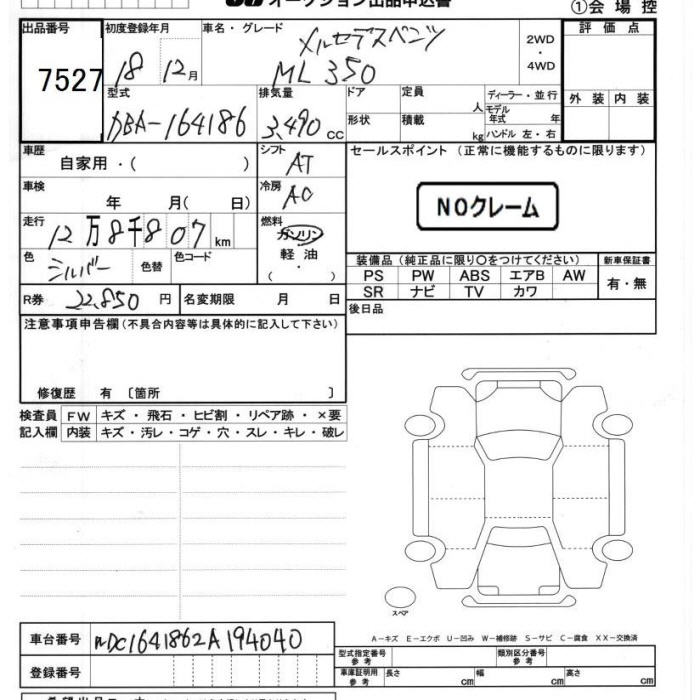 オークション出品申込書
①会場控
出品番号 7527
初度登録年月 18 12月
車名・グレード メルセデスベンツ ML 350
2WD・4WD
評価点
外装 内装
型式 DBA-164186
排気量 3,490 cc
ドア 形状
定員 人
積載 kg
ディーラー・並行
モデル年式 年
ハンドル 左・右
車歴 自家用・( )
シフト AT
セールスポイント (正常に機能するものに限ります)
車検 年 月( 日)
冷房 AC
NOクレーム
走行 12万8千807km
燃料 ガソリン・軽油 ( )
色 シルバー 色替
色コード
装備品 (純正品に限り〇をつけてください)
新車保証書
PS PW ABS エアB AW
有・無
SR ナビ TV カワ
R券 22,850 円
名変期限 月 日
後日品
注意事項申告欄(不具合内容等は具体的に記入して下さい)
修復歴 有 〔箇所 〕
検査員記入欄
FW キズ・飛石・ヒビ割・リペア跡・×要
内装 キズ・汚レ・コゲ・穴・スレ・キレ・破レ
スペア
A-キズ E-エクボ U-凹み W-補修跡 S-サビ C-腐食 XX-交換済
車台番号 WDC1641862A194040
型式指定番号 参考
類別区分番号 参考
登録番号
車庫証明用 参考 長さ cm 幅 cm 高さ cm